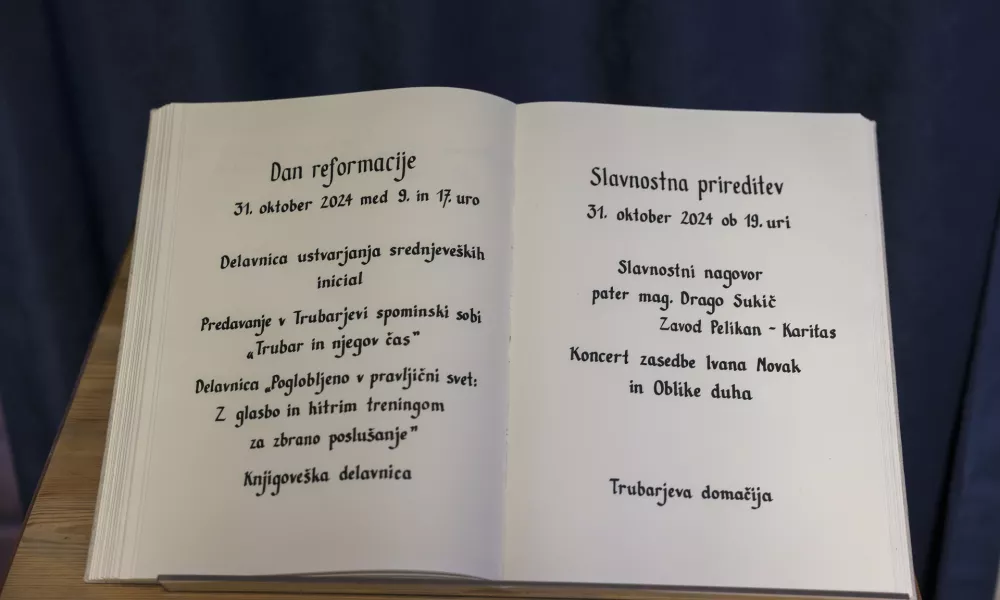 Dan reformacije
31. oktober 2024 med 9. in 17. uro
Delavnica ustvarjanja srednjeveških
inicial
Predavanje v Trubarjevi spominski sobi
„Trubar in njegov čas"
Delavnica „Poglobljeno v pravljični svet:
Z glasbo in hitrim treningom
za zbrano poslušanje"
Knjigoveška delavnica
Slavnostna prireditev
31. oktober 2024 ob 19. uri
Slavnostni nagovor
pater mag. Drago Sukič
Zavod Pelikan - Karitas
Koncert zasedbe Ivana Novak
in Oblike duha
Trubarjeva domačija